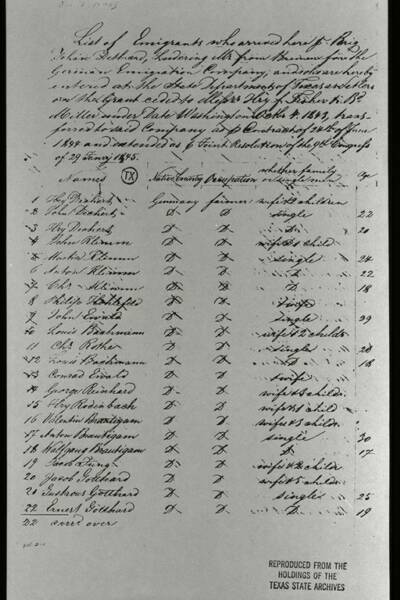 List of Emigrants who arrived here p Brig
John Dethard, Lüdering Mr. from Bremen for the
German Emigration Company, and who are hereby
entered at the State Department of Texas as Settlers
on the Grant ceded to Messrs Hry f. Fisher & B.
Miller under Date Washington 1843, trans-
ferred to said Company as p Contract of 24th of June
1844 and extended as p Joint Resolution of the 9th Congress
of 29 January 1845.
Names TX Native Country Occupation whether family or single men Age
1 Hry Deuhert Germany farmer wife & children
2 John Deuhert D D single 22
3 Hry Deuhert D D D 20
4 John Klimm D D wife & 1 child
5 Klimm D D single 24
6 Anton Klimm D D D 22
7 Chs Klimm D D D 18
8 Philipp D D wife
9 John Ewald D D single 29
10 Louis Bachmann D D wife & 2 childr
11 Chs Rothe D D single 20
12 Louis Bachmann D D D 18
13 Conrad Ewald D D wife
14 George Reinhard D D wife & childr.
15 Hry Rodenbach D D wife & 1 child
16 Valentin Brautigam D D wife & childr.
17 Anton Brautigam D D single 30
18 Wolfgang Brautigam D D D 17
19 Jacob D D wife & childr
20 Jacob Gotthard D D wife & 5 childr
21 Gustavus Gotthard D D single 25
22 Ernest Gotthard D D D 19
22 carrd over
REPRODUCED FROM THE
HOLDINGS OF THE
TEXAS STATE ARCHIVES